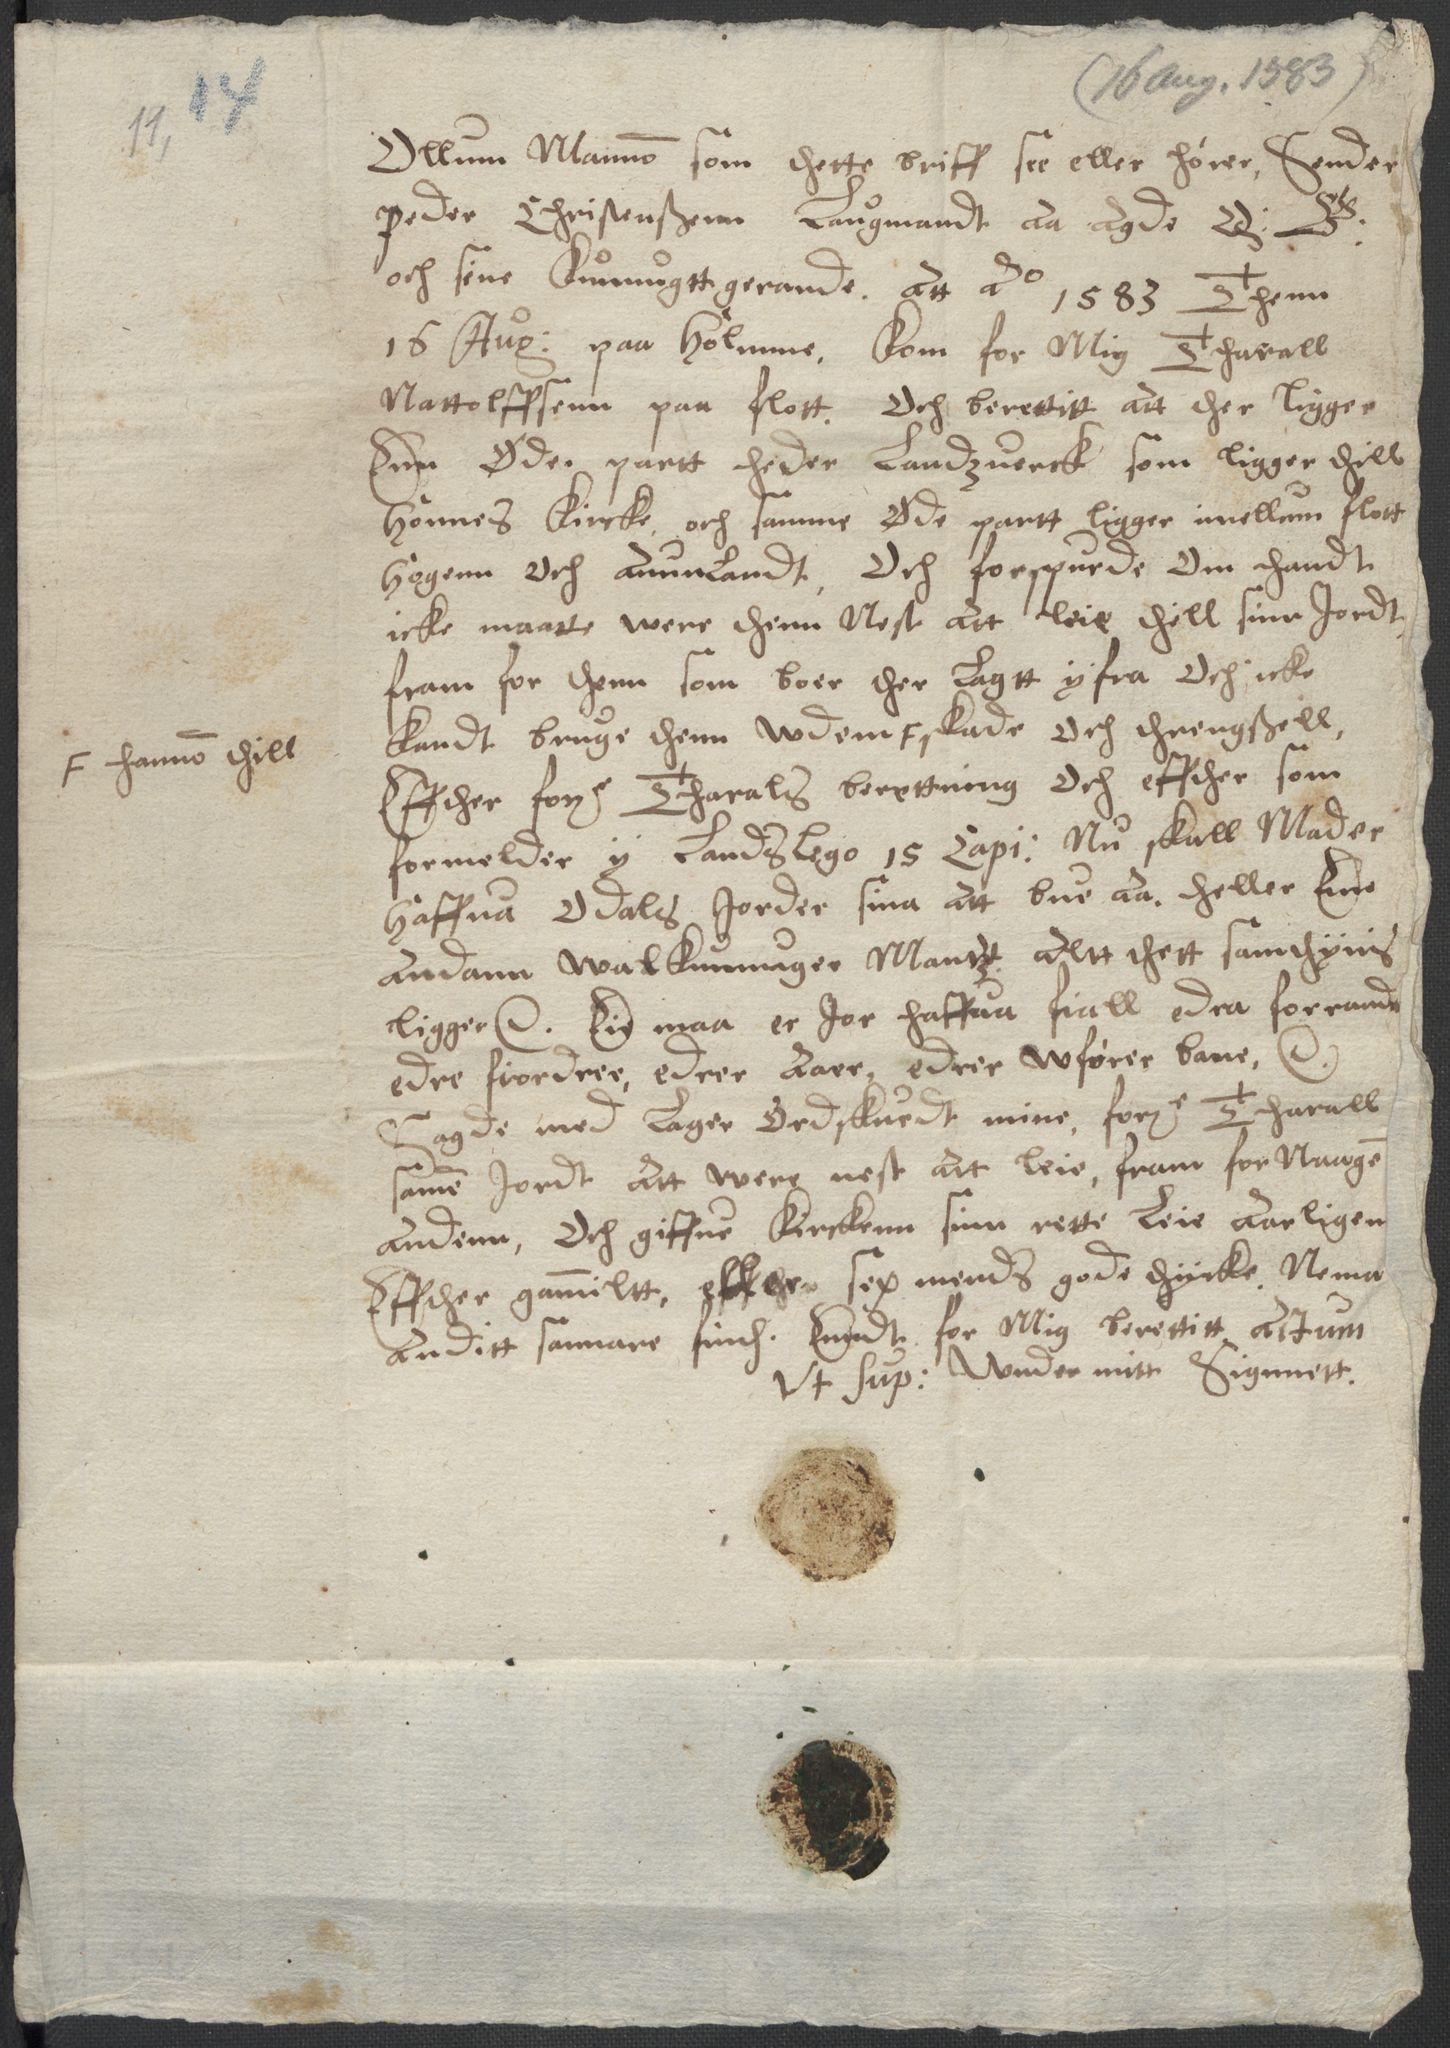 (16 Aug. 1583)
14
11,
Ollum Mannō som thette breff see eller hörer, Sender
Peder Christenßenn Laugmandt aa Agde Q: G:
och sine Kunnugtt gerande. Att Aō 1583 Thenn
16 Aug: paa Holmme, kom for Mig Tharall
Nattolffsenn paa flott. Och berettitt att ther ligger
Enn Øde partt heder Landzuerck som ligger thill
Hönnes Kircke, och samme Øde partt ligger imellum flott
högenn Och Annlandt, Och forspurde Om handt
icke maatte were thenn Nest att leie thill sinn Jordt,
fram for thenn som boer ther Lagtt ifra Och icke
kandt bruge thenn wdenn F skade Och threngßell,
F hannō thill
Effther forne Tharals berettning Och effther som
formelder y Landslego 15 Capi: Nu skall Mader
haffua Odals Jorder sina att bue aa. heller Enn
andann walkunnuger Mantz. altt thett samthyiis
ligger. Eig maa er Jor haffua fiall edra forrande
edre fiordree, edrer Aaer, edrer wförer bane,
Sagde med Lager Ordskuedt mine, forne Tharall
samē Jordt Att were nest att leie, fram for Naagē
andenn, Och giffue Kirckenn sinn rette Leie Aarligen
Effther gammiltt, effther sex mends gode tycke. Nema
anditt sannare finds. Enndt for Mig berettitt Actum
Vt sup: Wnder mitt Signnett.